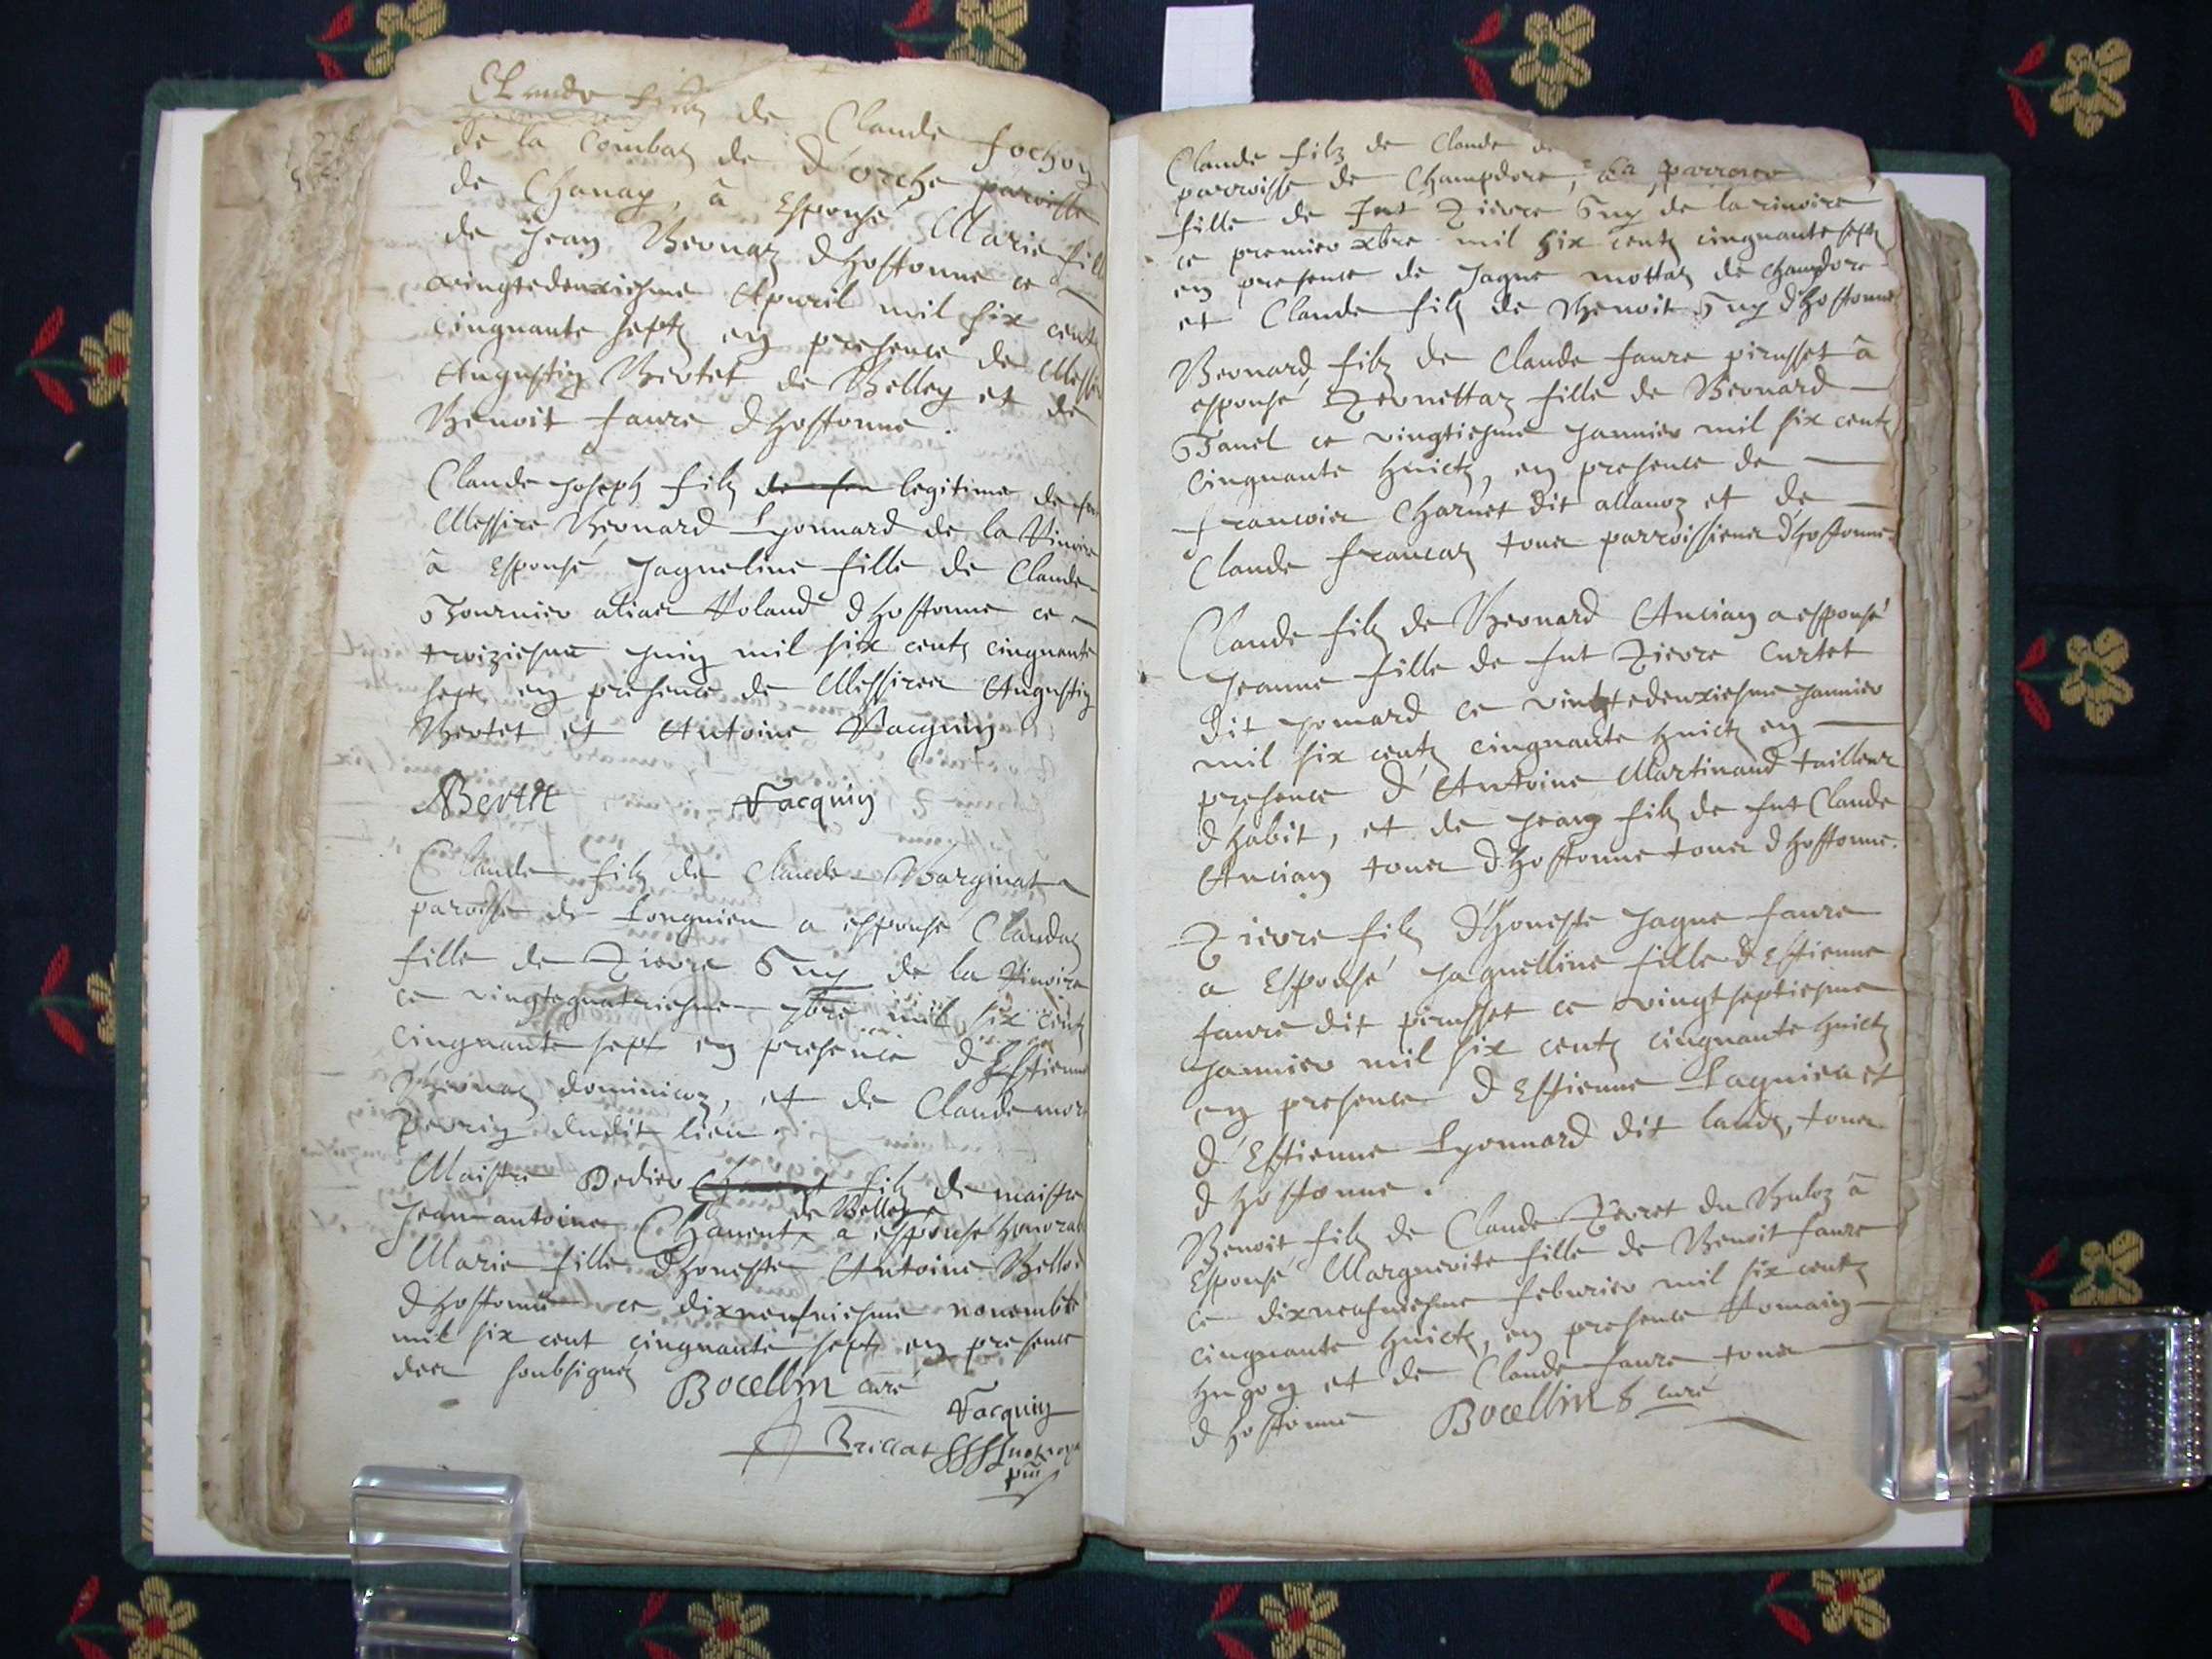 Claude filz de Claude fochoz
de la Combaz de d'orche paroisse
de Chanay, â Espousé Marie fille
de Jean Bernaz dhostonne ce
vingtedeuxiesme Apvril mil six centz
cinquante septz en presence de Messire
Augustin Bertet de Belley et de
Benoit faure dhostonne.
Claude Joseph filz de feu legitime de feu
Messire Bernard Lyonnard de la Rivoire
â Espousé Jaqueline fille de Claude
Tournier alias Roland dhostonne ce
troiziesme Juin mil six centz cinquante
sept en presence de Messires Augustin
Bertet et Antoine Vacquin
Bertet Vacquin
Claude filz de Claude Barginat
paroisse de Longnieu a espousé Claudaz
fille de Pierre Guy de la Rivoire
ce vingtequatriesme 7bre mil six centz
cinquante sept en presence d'Estienne
Bernaz dominicoz, et de Claude
perrin dudit lieu.
Maistre Dedier filz de maistre
de Belley
Jean antoine Chanent, a espousé honorable
Marie fille dhoneste Antoine
dhostonne ce dixneufviesme novembre
mil six cent cinquante septz en presence
des soubsignéz Bocellin curé
Vacquin
Brillat
Claude filz de Claude de
parroisse de Champdore, â
fille de fut Pierre Guy de la rivoire
ce premier xbre mil six centz cinquante septz
en presence de Jaque mottaz de champdore
et Claude filz de Benoit Guy dhostonne
Bernard filz de Claude faure pirusset â
espousé Pernettaz fille de Bernard
Tanel ce vingtiesme Janvier mil six centz
Cinquante huictz, en presence de
francois Charvet dit allanoz et de
Claude francaz tous parroissiens dhostonne.
Claude filz de Bernard Ancian a espousé
Jeanne fille de fut Pierre Curtet
dit Jomard ce vingtedeuxiesme Janvier
mil six centz cinquante huictz en
presence d'Antoine Martinand tailleur
dhabit, et de Jean filz de fut Claude
Ancian tous dhostonne tous dhostonne.
Pierre filz dhoneste Jaque faure
a Espousé Jaquelline fille dEstienne
faure dit pirusset ce vingtseptiesme
Janvier mil six centz cinquante huictz
en presence dEstienne Lagnieu et
d'Estienne Lyonnard dit landz, tous
dhostonne.
Benoit filz de Claude Perret du Buloz â
Espousé Marguerite fille de Benoit faure
ce dixneufviesme febvrier mil six centz
cinquante huictz, en presence Romain
hugon et de Claude faure tous
dhostonne Bocellin curé